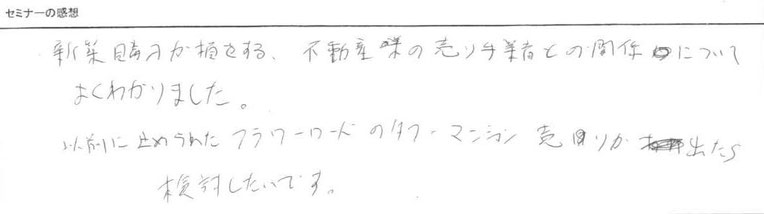 セミナーの感想
新築購入が損をする、不動産の売り手業者との関係について
よくわかりました。
以前に止められたフラワーロードのタワーマンション売りが出たら
検討したいです。